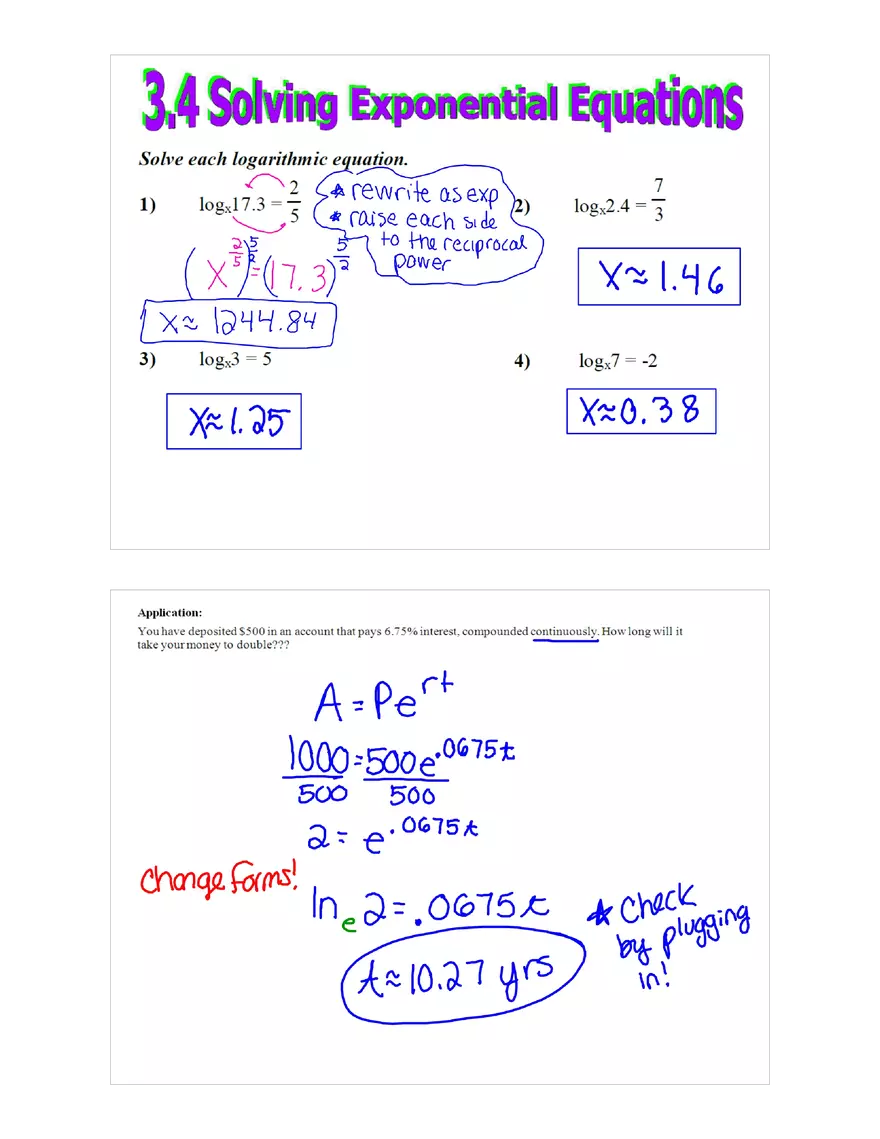 3.4 Solving Exponential Equations
Solve each logarithmic equation.
1) logₓ17.3 = 2/5
* rewrite as exp
* raise each side
to the reciprocal
power
(x^(2/5))^(5/2) = (17.3)^(5/2)
x ≈ 1244.84
2) logₓ2.4 = 7/3
x ≈ 1.46
3) logₓ3 = 5
x ≈ 1.25
4) logₓ7 = -2
x ≈ 0.38
Application:
You have deposited $500 in an account that pays 6.75% interest, compounded continuously. How long will it
take your money to double???
A = Pe^(rt)
1000 = 500e^(.0675t)
500 500
2 = e^(.0675t)
Change forms!
ln e 2 = .0675t
t ≈ 10.27 yrs
* Check
by plugging
in!